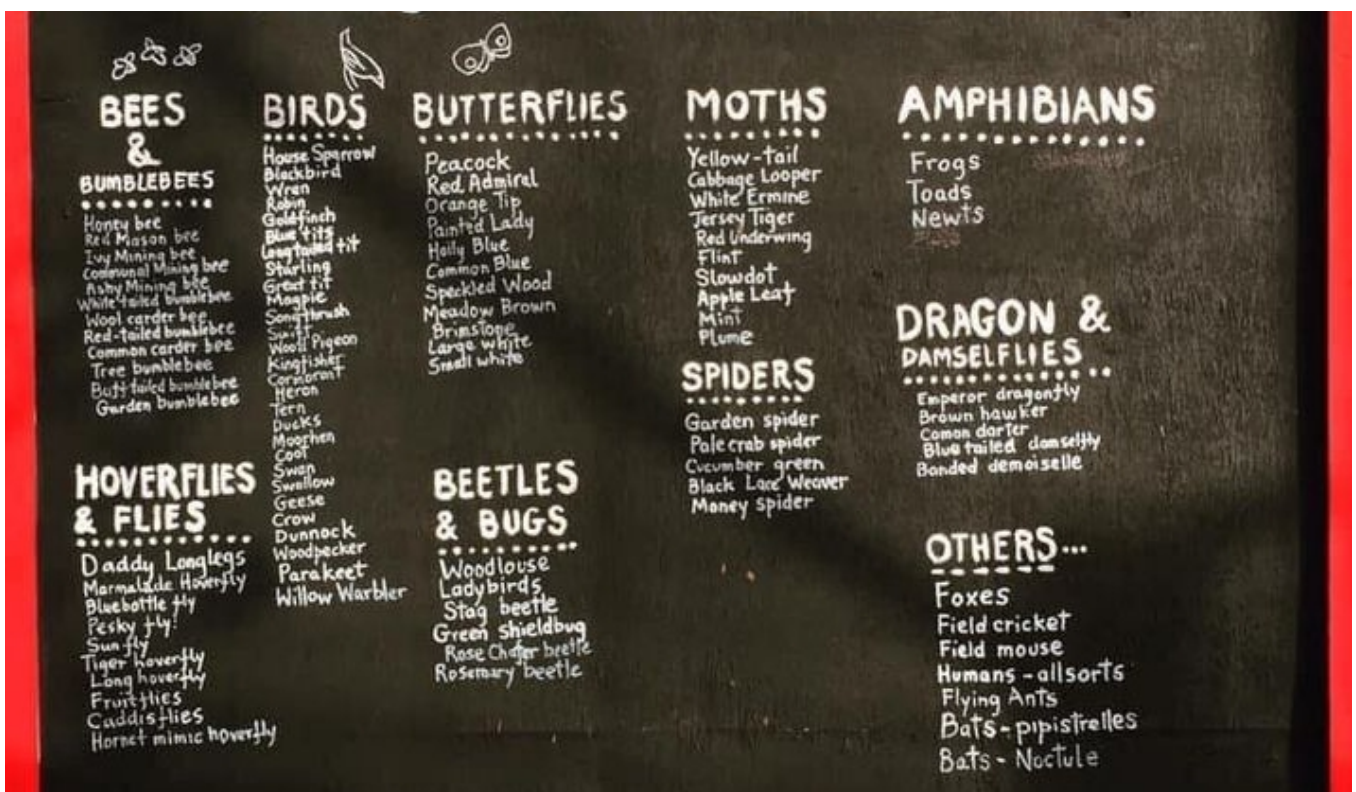 BEES
&
BUMBLEBEES
Honey bee
Red Mason bee
Ivy Mining bee
Communal Mining bee
Ashy Mining bee
White tailed bumblebee
Wool carder bee
Red-tailed bumblebee
Common carder bee
Tree bumblebee
Buff tailed bumblebee
Garden bumblebee
HOVERFLIES
& FLIES
Daddy Longlegs
Marmalade Hoverfly
Bluebottle fly
Pesky fly!
Sun fly
Tiger hoverfly
Long hoverfly
Fruit flies
Caddisflies
Hornet mimic hoverfly
BIRDS
House Sparrow
Blackbird
Wren
Robin
Goldfinch
Blue tits
Longtailed tit
Starling
Great tit
Magpie
Songthrush
Swift
Wood Pigeon
Kingfisher
Cormorant
Heron
Tern
Ducks
Moorhen
Coot
Swan
Swallow
Geese
Crow
Dunnock
Woodpecker
Parakeet
Willow Warbler
BUTTERFLIES
Peacock
Red Admiral
Orange Tip
Painted Lady
Holly Blue
Common Blue
Speckled Wood
Meadow Brown
Brimstone
Large white
Small white
BEETLES
& BUGS
Woodlouse
Ladybirds
Stag beetle
Green shieldbug
Rose Chafer beetle
Rosemary beetle
MOTHS
Yellow-tail
Cabbage Looper
White Ermine
Jersey Tiger
Red Underwing
Flint
Slowdot
Apple Leaf
Mint
Plume
SPIDERS
Garden spider
Pale crab spider
Cucumber green
Black Lace Weaver
Money spider
AMPHIBIANS
Frogs
Toads
Newts
DRAGON &
DAMSELFLIES
Emperor dragonfly
Brown hawker
Comon darter
Blue tailed damselfly
Banded demoiselle
OTHERS...
Foxes
Field cricket
Field mouse
Humans - allsorts
Flying Ants
Bats - pipistrelles
Bats - Noctule